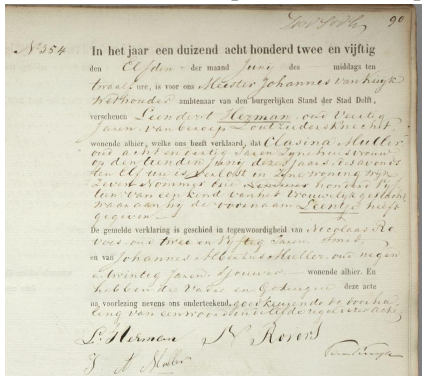 90
N° 354
In het jaar een duizend acht honderd twee en vijftig
den Elfden der maand Junij des middags ten
twaalf ure, is voor ons Meester Johannes van
Wethouder ambtenaar van den burgerlijken Stand der Stad Delft,
verschenen Leendert Herman, oud Veertig
Jaren, van beroep Loutziedersknecht,
wonende alhier, welke ons heeft verklaard, dat Clasina Muller
oud acht en dertig Jaren Zyne huisvrouw
op den tienden Junij dezes Jaars des avonds
ten Elf ure is verlost in Zyne woning Wyk
Zeven Nommer honderd Vyf
tien van een kind van het vrouwelyk geslacht
waaraan hy de voornaam Leentje heeft
gegeven
De gemelde verklaring is geschied in tegenwoordigheid van Nicolaas Ro
vers, oud twee en Vyftig Jaren, Smid,
en van Johannes Albertus Muller, oud negen
en twintig Jaren, Sjouwer wonende alhier. En
hebben de Vader en Getuigen deze acte
na voorlezing nevens ons onderteekend, goedkeurende de doorha
ling van een woord in de regel dezer acte
L. Herman N Rovers
J A Muller